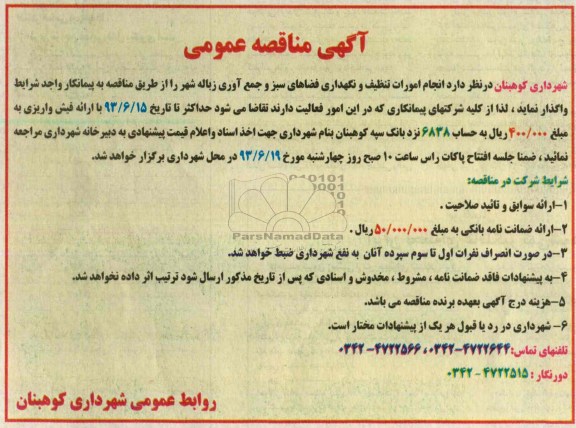 آگهی مناقصه عمومی
شهرداری کوهبنان درنظر دارد انجام امورات تنظیف و نگهداری فضاهای سبز و جمع آوری زباله شهر را از طریق مناقصه به پیمانکار واجد شرایط
واگذار نماید ، لذا از کلیه شرکتهای پیمانکاری که در این امور فعالیت دارند تقاضا می شود حداکثر تا تاریخ ۹۳/۶/۱۵ با ارائه فیش واریزی به
مبلغ ۴۰۰/۰۰۰ ریال به حساب ۶۸۳۸ نزد بانک سپه کوهبنان بنام شهرداری جهت اخذ اسناد واعلام قیمت پیشنهادی به دبیرخانه شهرداری مراجعه
نمائید ، ضمنا جلسه افتتاح پاکات راس ساعت ۱۰ صبح روز چهارشنبه مورخ ۹۳/۶/۱۹ در محل شهرداری برگزار خواهد شد.
شرایط شرکت در مناقصه:
۱-ارائه سوابق و تائید صلاحیت .
۲-ارائه ضمانت نامه بانکی به مبلغ ۵۰/۰۰۰/۰۰۰ ریال .
۳-در صورت انصراف نفرات اول تا سوم سپرده آنان به نفع شهرداری ضبط خواهد شد.
۴-به پیشنهادات فاقد ضمانت نامه ، مشروط ، مخدوش و اسنادی که پس از تاریخ مذکور ارسال شود ترتیب اثر داده نخواهد شد.
۵-هزینه درج آگهی بعهده برنده مناقصه می باشد.
۶- شهرداری در رد یا قبول هر یک از پیشنهادات مختار است.
تلفنهای تماس: ۴۷۲۲۶۴۴-۰۳۴۲ ، ۴۷۲۲۵۶۶- ۰۳۴۲
دورنگار : ۴۷۲۲۵۱۵ - ۰۳۴۲
روابط عمومی شهرداری کوهبنان
ParsNamadData